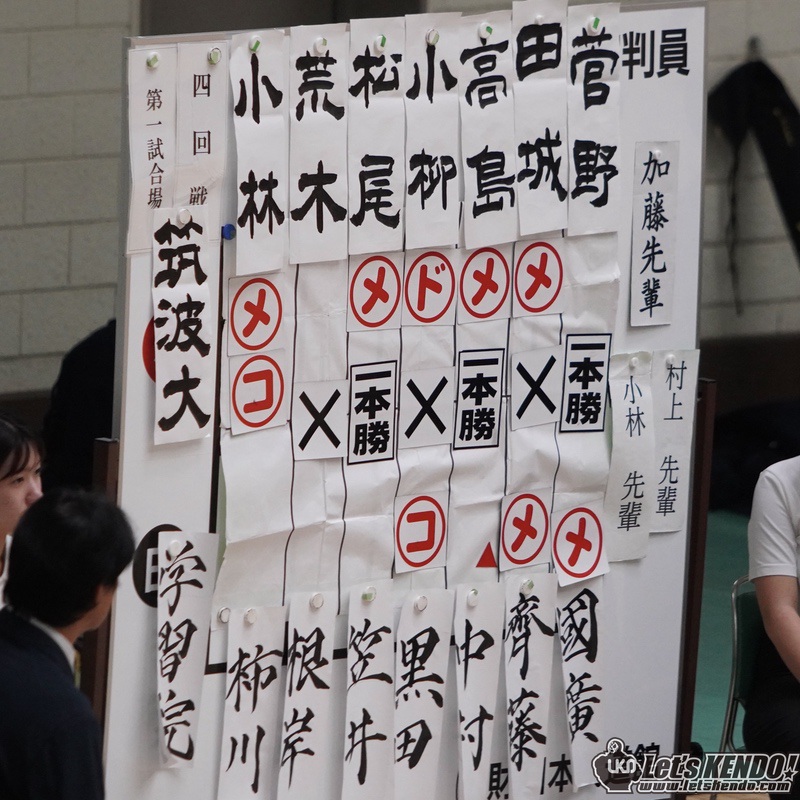 判員
加藤先輩
村上 先輩
小林 先輩
四回戦
第一試合場
筑波大
菅野
田城
高島
小柳
松尾
荒木
小林
メ
メ
ド
メ
メ
コ
一本勝
×
一本勝
×
一本勝
×
メ
メ
コ
学習院
國廣
齊藤
中村
黒田
笠井
根岸
柿川
財
本
道館
LKN Let's KENDO!
www.letskendo.com